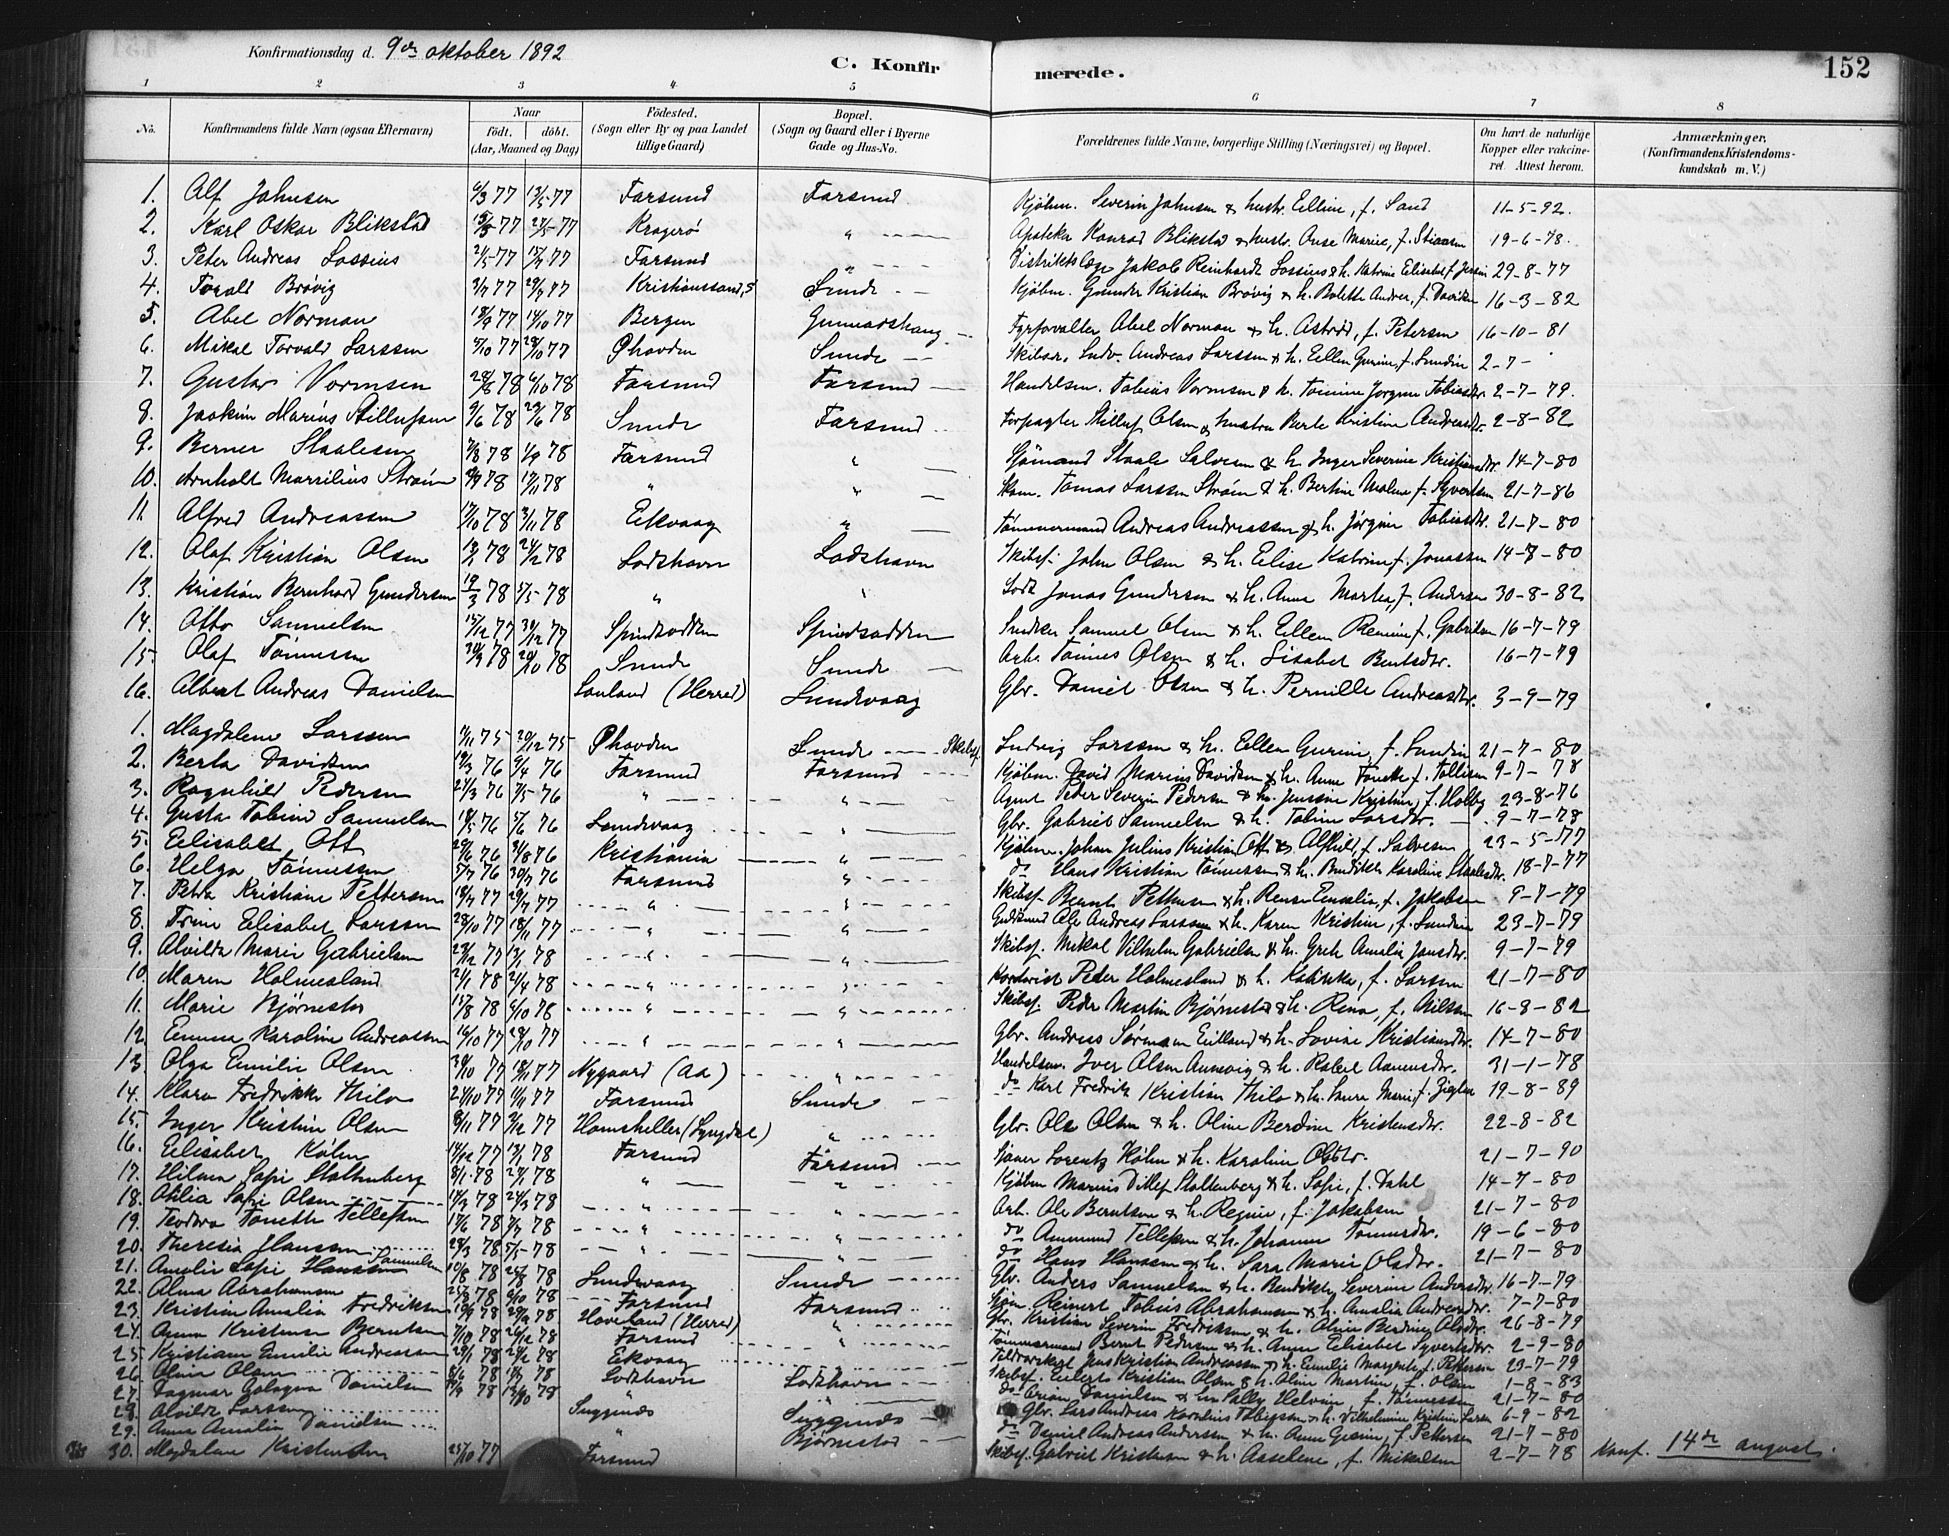 Konfirmationsdag d. 9de oktober 1892
C. Konfirmerede.
152
1 2 3 4 5 6 7 8
No. Konfirmandens fulde Navn (ogsaa Efternavn) Naar født. døbt. (Aar, Maaned og Dag) Fødested. (Sogn eller By og paa Landet tillige Gaard) Bopæl. (Sogn og Gaard eller i Byerne Gade og Hus-No. Forældrenes fulde Navne, borgerlige Stilling (Næringsvei) og Bopæl. Om havt de naturlige Kopper eller vakcineret Attest herom. Anmærkninger, (Konfirmandens Kristendomskundskab m. V.)
1. Alf Johnsen 6/3 77 13/5 77 Farsund Farsund Kjøbm. Severin Johnsen & hustr. Elline, f. Sand 11-5-92.
2. Karl Oskar Blikstad 77 77 Kragerö " Apoteker Konrad Blikstad & hustr. Anne Marie, f. 19-6-78.
3. Peter Andreas Lossius 2/5 77 15/7 77 Farsund " Distriktslæge Jakob Reinhardt Lossius & h. Katrine Elisabet f. Jensen 29-8-77
4. Torald Brøvig 3/7 77 29/7 77 Kristianssand, S Sunde Kjøbm. Gunder Kristian Brøvig & h. Bolette Andrea, f. Davidsen 16-3-82
5. Abel Norman 18/9 77 14/10 77 Bergen Gunnarshaug Fyrforvalter Abel Norman & h. Astrid, f. Petersen 16-10-81
6. Mikal Torvald Larssen 5/10 77 28/10 77 Phovden Sunde Skibsr. Ludv. Andreas Larssen & h. Ellen Gurine, f. Sundin 2-7-
7. Gustav Vormsen 78 6/10 78 Farsund Farsund Handelsm. Tobias Vormsen & h. Tomine Jorgine Tobiasdtr. 2-7-79.
8. Joakim Marius Stillufsen 9/6 78 29/6 78 Sunde Farsund Forpagter Stilluf Olsen & hustru Berte Kristine Andreasdtr. 2-8-82
9. Berner Staalesen 78 1/9 78 Farsund " Sjømand Staale Salvesen & h. Inger Severine Kristiansdtr. 14-7-80
10. Arnholt Marsilius Strøm 78 17/11 78 " " Skom. Tomas Larssen Strøm & h. Bertine Maline f. Syvertsen 21-7-86
11. Alfred Andreassen 17/10 78 3/11 78 Eikvaag " Tømmermand Andreas Andreassen & h. Jörgine Tobiasdtr. 21-7-80
12. Olaf Kristian Olsen 78 24/2 78 Lodshavn Lodshavn Skibsf. John Olsen & h. Elise Katrine, f. Jonassen 14-8-80
13. Kristian Bernhard Gundersen 19/3 78 5/5 78 " " Lods Jonas Gundersen & h. Anna Marta, f. Andersen 30-8-82
14. Otto Samuelsen 15/12 77 30/12 77 Spindsodden Spindsodden Snedker Samuel Olsen & h. Ellen Remine f. Gabrielsen 16-7-79
15. Olaf Tönnessen 78 20/10 78 Sunde Sunde Arb. Tönnes Olsen & h. Lisabet Berntsdtr. 16-7-79
16. Albert Andreas Danielsen Lauland (Herred) Sundevaag Gbr. Daniel Olsen & h. Pernille Andreasdtr. 3-9-79
1. Magdalene Larssen 75 20/12 75 Phovden Sunde Skibsf. Ludvig Larssen & h. Ellen Gurine, f. Sundin 21-7-80
2. Berta Davidsen 76 9/4 76 Farsund Farsund Kjøbm. David Marius Davidsen & h. Anne Tonette f. Tollisen 9-7-78
3. Ragnhild Pedersen 24/3 76 7/5 76 " " Agent Peder Severin Pedersen & h. Jensine Kristine, f. Holby 23-8-76
4. Gusta Tobine Samuelsen 18/5 76 5/6 76 Sundevaag " Gbr. Gabriel Samuelsen & h. Tobine Larsdtr. 9-7-78
5. Elisabet Ott 76 3/8 76 Kristiania " Kjøbm. Johan Julius Kristian Ott & Alfhild, f. Salvesen 23-5-77
6. Helga Tönnessen 5/7 76 30/7 76 Farsund " do Hans Kristian Tönnessen & h. Bendikte Karoline Staalesdtr. 18-7-77
7. Petra Kristiane Pettersen 18/7 77 29/7 77 " " Skibsf. Bernt Pettersen & h. Rense Emalie, f. Jakobsen 9-7-79
8. Trine Elisabet Larssen 28/10 77 18/11 77 " " Guldsmed Ole Andreas Larssen & h. Karen Kristine, f. Sundin 23-7-79
9. Alvilda Marie Gabrielsen 23/12 77 13/1 78 " " Skibsf. Mikal Vilhelm Gabrielsen & h. Grete Amalie Jansdtr. 9-7-79
10. Maren Holmesland 2/1 78 21/4 78 " " Peder Holmesland & h. Katinka, f. Larssen 21-7-80
11. Marie Bjørnestad 15/8 78 6/10 78 " " Skibsf. Peder Martin Bjørnestad & h. Rina, f. Nilsen 16-8-82
12. Emma Karoline Andreassen 16/10 77 28/10 77 " " Gbr. Andreas Sørensen Eilland & h. Lovise Kristiansdtr. 14-7-80
13. Olga Emilie Olsen 30/10 77 18/11 77 Nygaard (Aa) " Handelsm. Iver Olsen Aunevig & h. Rakel Aanensdtr. 31-1-78
14. Klara Fredrikke Thilo 24/10 77 11/11 77 Farsund Sunde do Karl Fredrik Kristian Thilo & h. Laura Marie, f. Zigler 19-8-89
15. Inger Kristine Olsen 8/11 77 2/12 77 Homsheller (Lyngdal) " Gbr. Ole Olsen & h. Oline Berdine Kristensdtr. 22-8-82
16. Elisabet Køhn 14/12 77 13/1 78 Farsund Farsund Lorentz Køhn & h. Karoline Olsdtr. 21-7-90
17. Hilma Sofie Stoltenberg 8/1 78 27/1 78 " " Kjøbm. Marius Ditlef Stoltenberg & h. Sofie, f. Dahl 14-7-80
18. Otilia Sofie Olsen 17/2 78 24/3 78 " " Arb. Ole Berntsen & h. Regine, f. Jakobsen 21-7-80
19. Teodora Tonette Tellefsen 17/6 78 78 " " do Ammund Tellefsen & h. Johanne Tönnesdtr. 19-6-80
20. Theresia Hanssen 28/3 78 5/5 78 " " do Hans Hanssen & h. Sara Marie Olsdtr. 21-7-80
21. Amalie Sofie Hanssen Samuelsen 10/8 78 25/8 78 Sundevaag Sunde Gbr. Anders Samuelsen & h. Bendikte Severine Andersdtr. 16-7-79
22. Alma Abrahamsen 78 6/10 78 Farsund Farsund Sjøm. Reinert Tobias Abrahamsen & h. Amalie Andreasdtr. 7-7-80
23. Kristine Amalia Fredriksen 78 78 Hoveland (Herred) " Gbr. Kristian Severin Fredriksen & h. Oline Berdine Olsdtr. 26-8-79
24. Anna Kristense Berntsen 7/10 78 26/12 78 Farsund " Tømmermand Bernt Pedersen & h. Anne Elisabet Syvertsdtr. 2-9-80
25. Kristiane Emilie Andreassen 29/1 78 24/2 78 Eikvaag Jens Kristian Andreassen & h. Emilie Margrete f. Pettersen 23-7-79
26. Olina Olsen 8/6 78 78 Lodshavn Lodshavn Skibsf. Eilert Kristian Olsen & h. Oline Martine, f. Olsen 1-8-83
27. Dagmar Danielsen 78 13/10 78 " " do Danielsen & h. Sally Helvine f. Tönnessen 21-7-80
28. Alvilde Larssen Suggenes Suggenes Gbr. Lars Andreas Karelius Tobiassen & h. Vilhelmine Kristine Larsen 6-9-82
29. Anna Amalia Danielsen " Bjørnestad do Daniel Andreas Andersen & h. Anne Gurine, f. Pettersen 21-7-80
30. Magdalene Kristensen 25/10 77 Farsund Skibsf. Gabriel Kristensen & h. Asselene, f. Mikalsen 2-7-78 Konf. 14de august.